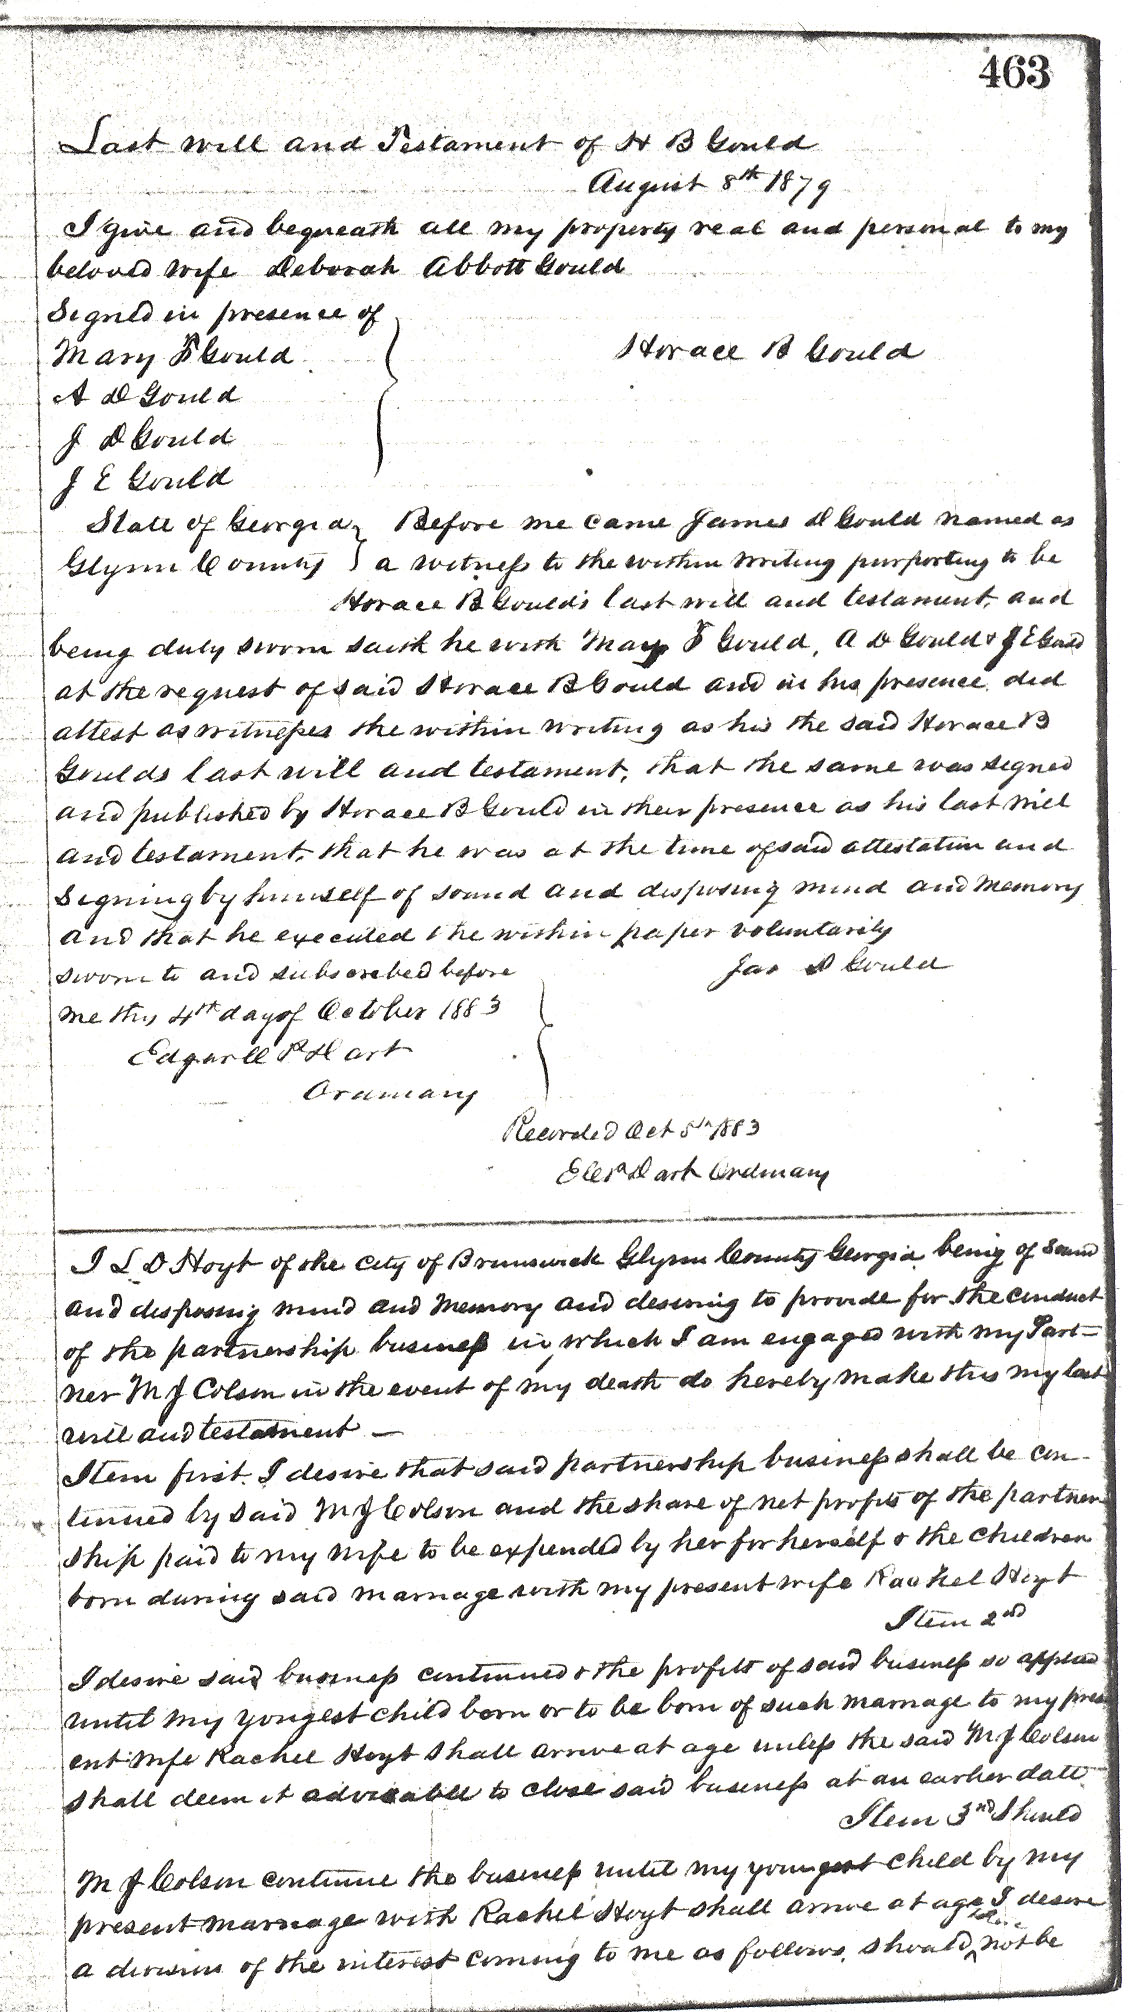 463
Last will and Testament of H B Gould
August 8th 1879
I give and bequeath all my property real and personal to my
beloved wife Deborah Abbott Gould
Signed in presence of
Mary F Gould
Horace B Gould
A D Gould
J D Gould
J E Gould
State of Georgia } Before me came James D Gould named as
Glynn County } a witness to the within writing purporting to be
Horace B Gould's last will and testament, and
being duly sworn saith he with Mary F Gould, A D Gould & J E Gould
at the request of said Horace B Gould and in his presence did
attest as witnesses the within writing as his the said Horace B
Goulds last will and testament, that the same was signed
and published by Horace B Gould in their presence as his last will
and testament, that he was at the time of said attestation and
signing by himself of sound and disposing mind and memory
and that he executed the within paper voluntarily
sworn to and subscribed before
Jas D Gould
me this 4th day of October 1883
Edgar C P Dart
Ordinary
Recorded Oct 5th 1883
E C P Dart Ordinary
I L D Hoyt of the City of Brunswick Glynn County Georgia being of sound
and disposing mind and memory and desiring to provide for the conduct
of the partnership business in which I am engaged with my Part=
ner M J Colson in the event of my death do hereby make this my last
will and testament —
Item first. I desire that said partnership business shall be con-
tinued by said M J Colson and the share of net profits of the partner
ship paid to my wife to be expended by her for herself & the children
born during said marriage with my present wife Rachel Hoyt
Item 2nd
I desire said business continued & the profits of said business so applied
until my yongest child born or to be born of such marriage to my pres
ent wife Rachel Hoyt shall arrive at age unless the said M. J Colson
shall deem it advisable to close said business at an earlier date
Item 3nd Should
M J Colson continue the business until my youngest child by my
present marriage with Rachel Hoyt shall arrive at age I desire
a division of the interest coming to me as follows, should not be